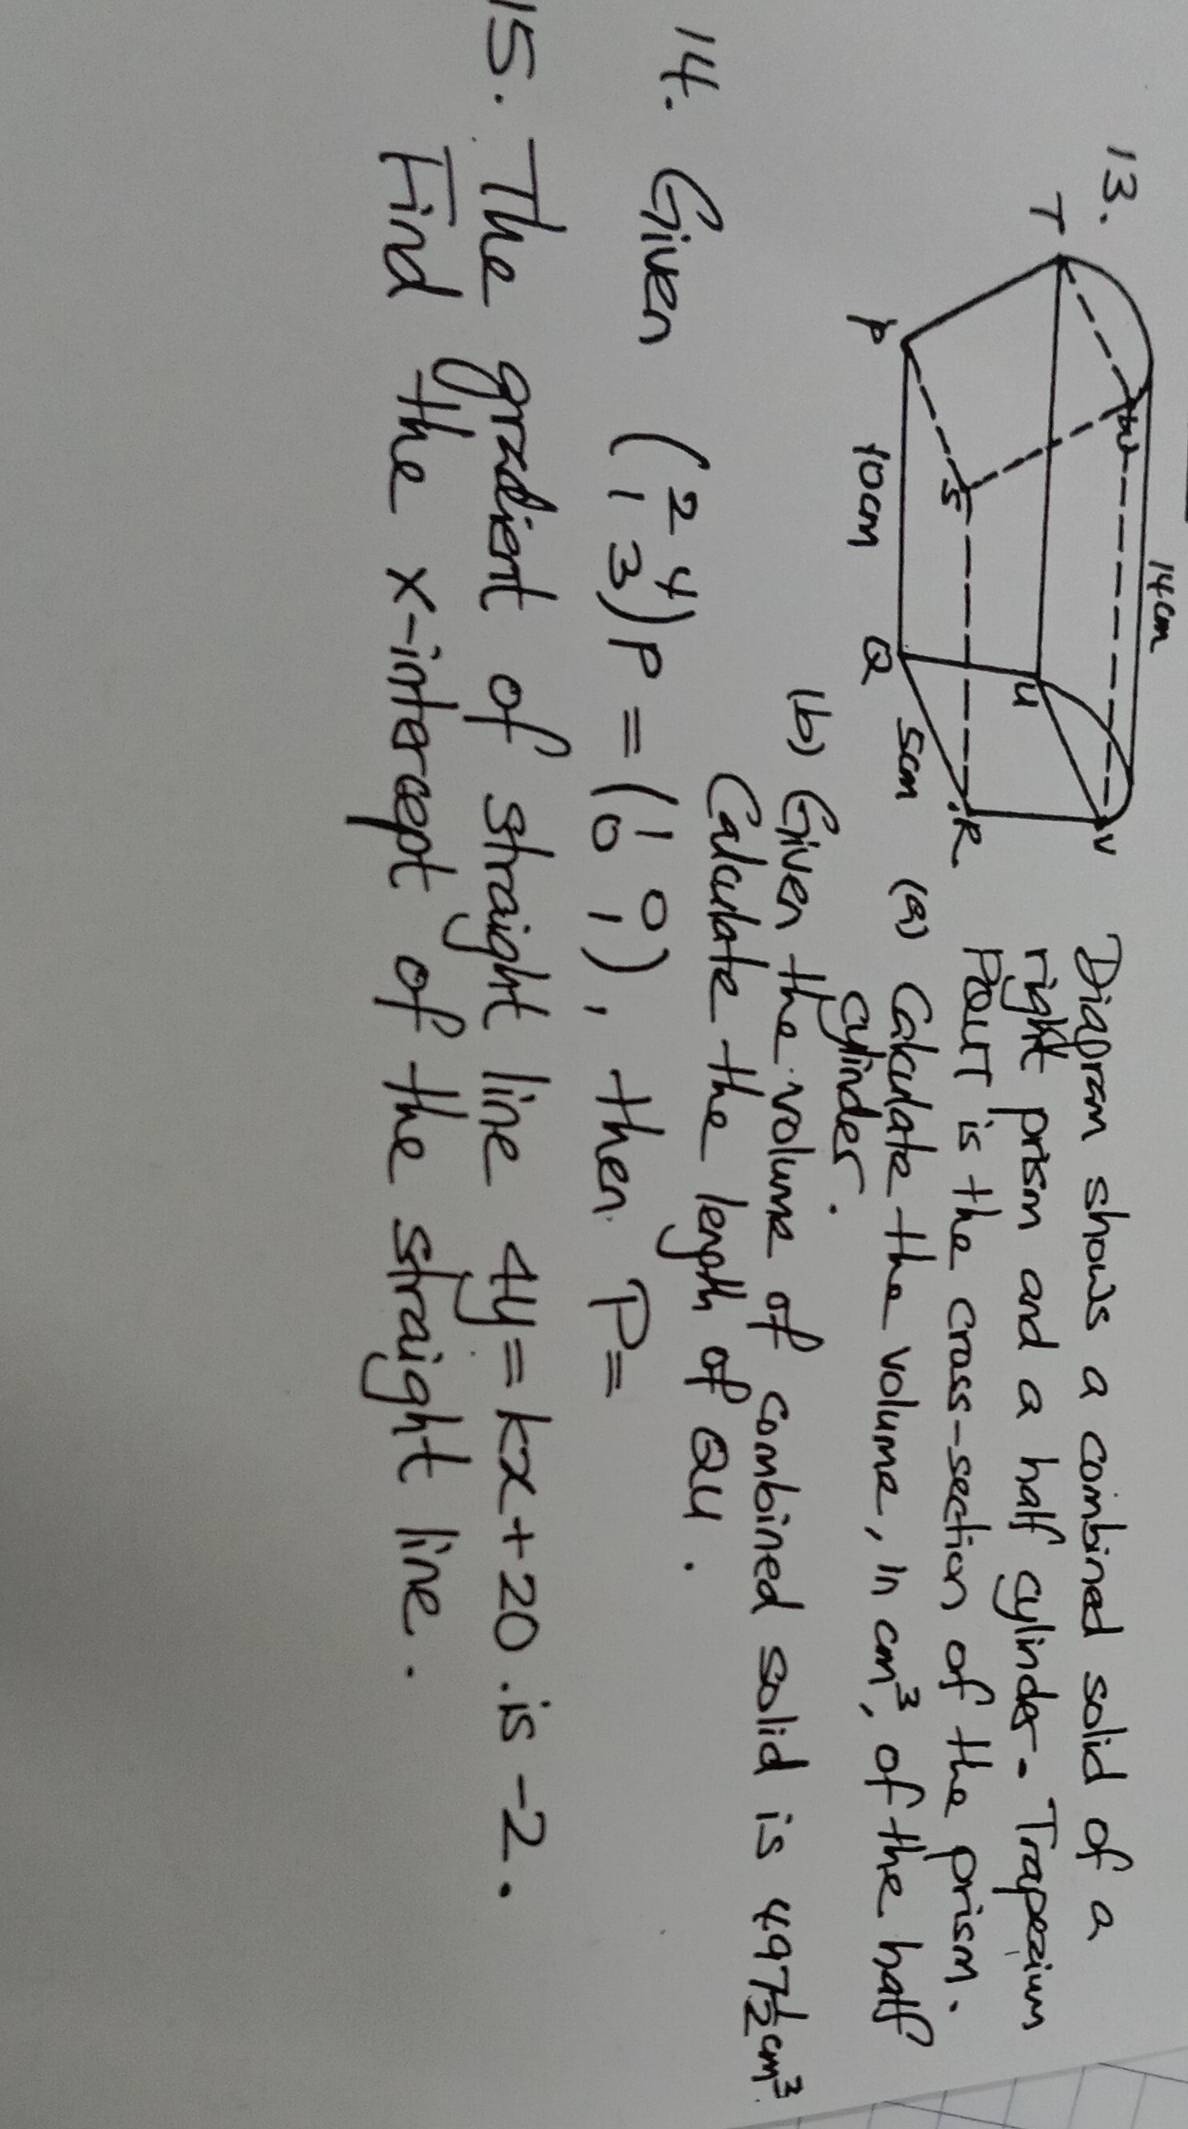 13.
T
W
14cm
V
U
P
S
10cm
Q
5cm
R
Diagram shows a combined solid of a
right prism and a half cylinder. Trapezium
PQUT is the cross-section of the prism.
(a) Calculate the volume, in cm³, of the half
cylinder.
(b) Given the volume of combined solid is 497½cm³.
Calculate the length of QU.
14. Given (2 4
1 3) P = (1 0
0 1), then P =
15. The gradient of straight line 4y = kx + 20 is -2.
Find the x-intercept of the straight line.